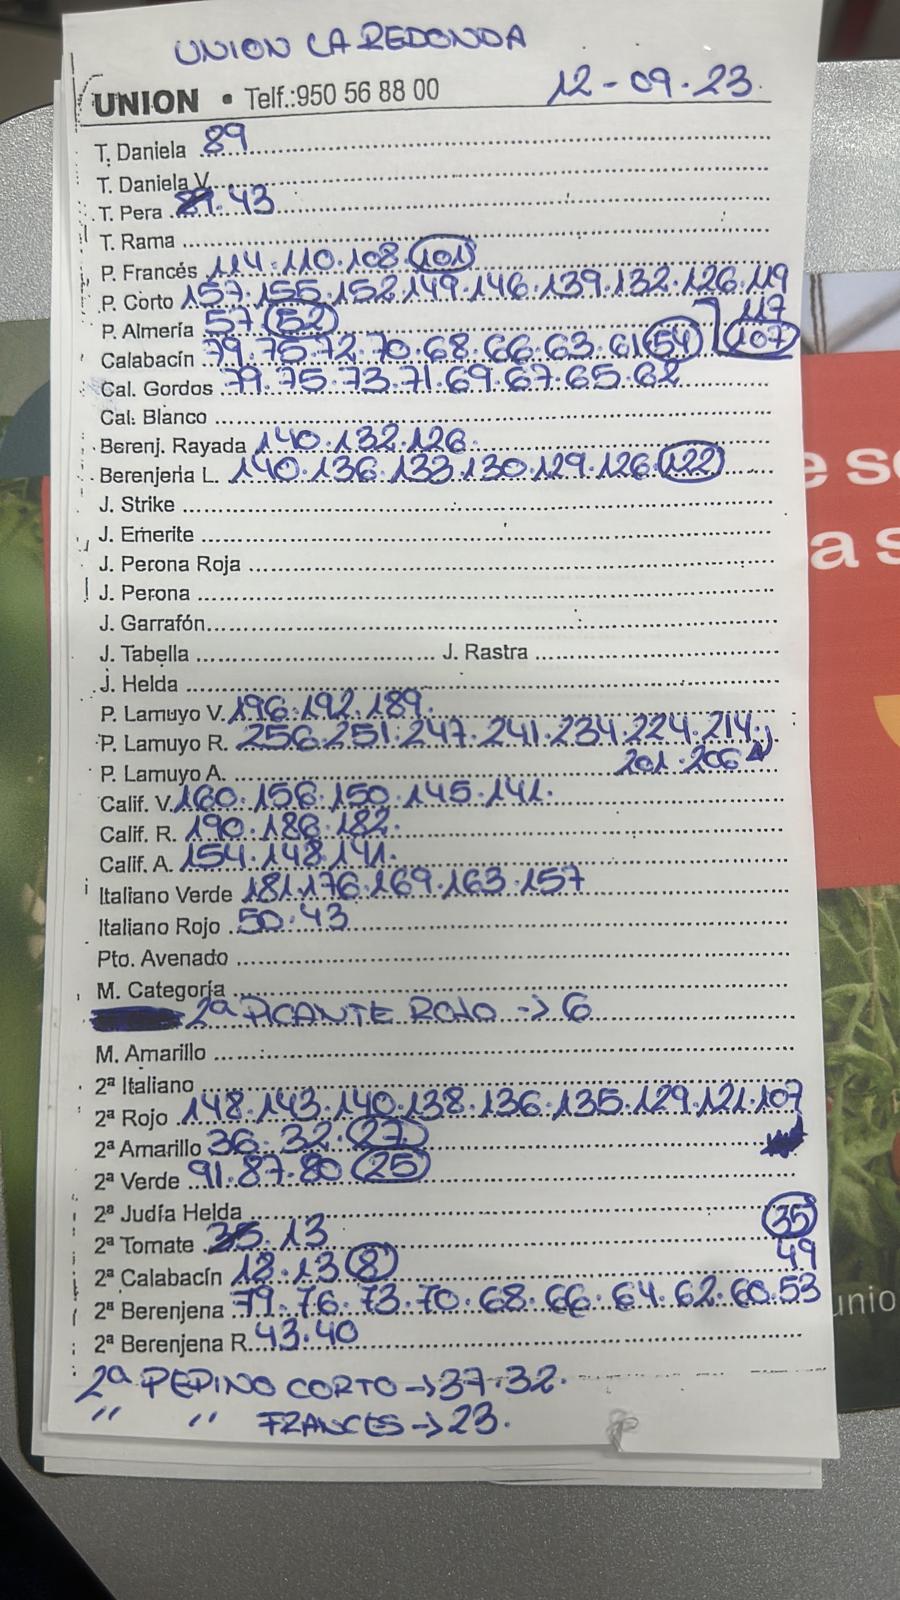 UNION LA REDONDA
UNION • Telf.:950 56 88 00 12-09-23.
T. Daniela 89
T. Daniela V.
T. Pera 43
T. Rama
P. Francés 114.110.108.101
P. Corto 157.155.152.149.146.139.132.126.119
117
P. Almería 57 52
107
Calabacín 79.75.72.70.68.66.63.61 54
Cal. Gordos 79.75.73.71.69.67.65.62
Cal. Blanco
Berenj. Rayada 140.132.126.
Berenjena L. 140.136.133.130.129.126.122
J. Strike
J. Emerite
J. Perona Roja
J. Perona
J. Garrafón
J. Tabella J. Rastra
J. Helda
P. Lamuyo V. 196.192.189.
P. Lamuyo R. 256.251.247.241.234.224.214.
201.206
P. Lamuyo A.
Calif. V. 160.156.150.145.141.
Calif. R. 190.186.182.
Calif. A. 154.148.141.
Italiano Verde 181.176.169.163.157
Italiano Rojo 50.43
Pto. Avenado
M. Categoría
2ª PICANTE ROJO -> 6
M. Amarillo
2ª Italiano
2ª Rojo 148.143.140.138.136.135.129.121.107
2ª Amarillo 36.32.27
2ª Verde 91.87.80 25
2ª Judía Helda
35
2ª Tomate 13
49
2ª Calabacín 18.13 8
2ª Berenjena 79.76.73.70.68.66.64.62.60.53
2ª Berenjena R. 43.40
2ª PEPINO CORTO -> 37.32.
" " FRANCES -> 23.